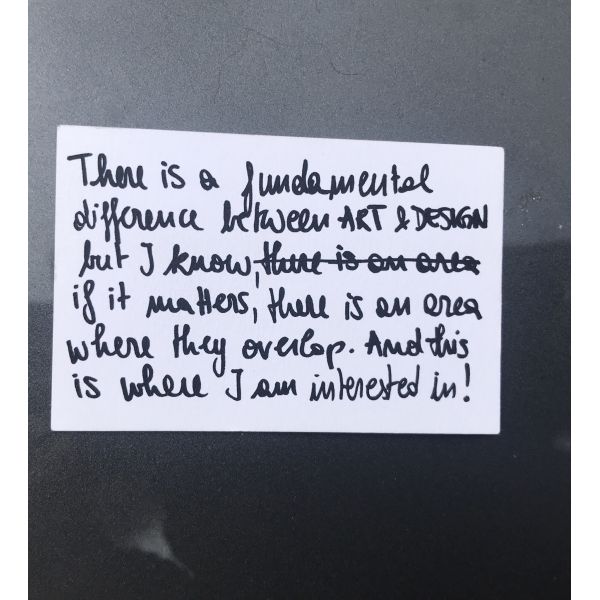 There is a fundamental
difference between ART & DESIGN
but I know, there is an area
if it matters, there is an area
where they overlap. And this
is where I am interested in!